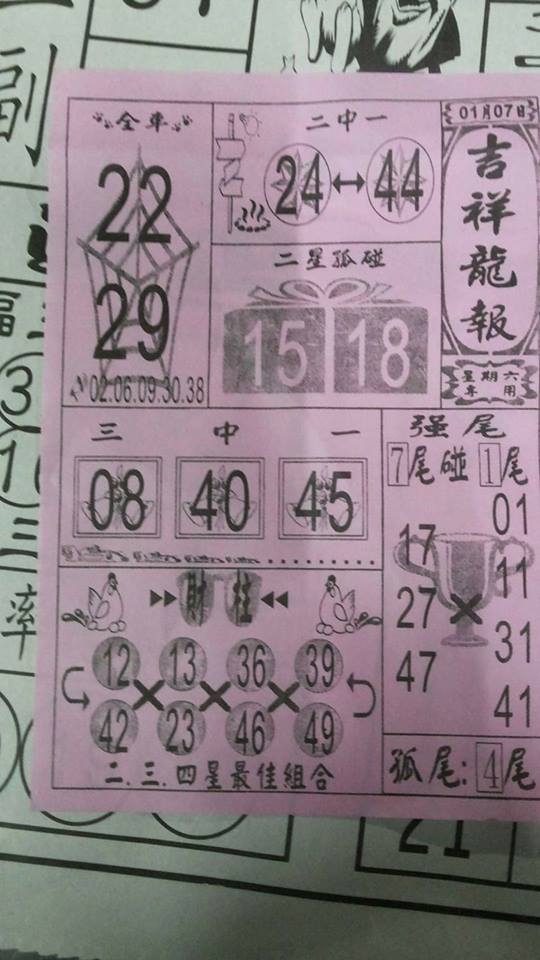 01月07日
吉祥龍報
星期六
專用
全車
22
29
02.06.09.30.38
二中一
24 44
二星孤碰
15 18
三中一
08 40 45
强尾
7尾碰1尾
01
17
11
27
31
47
41
財柱
12 13 36 39
42 23 46 49
二.三.四星最佳組合
孤尾:4尾
副
福
3
1
三
率
21